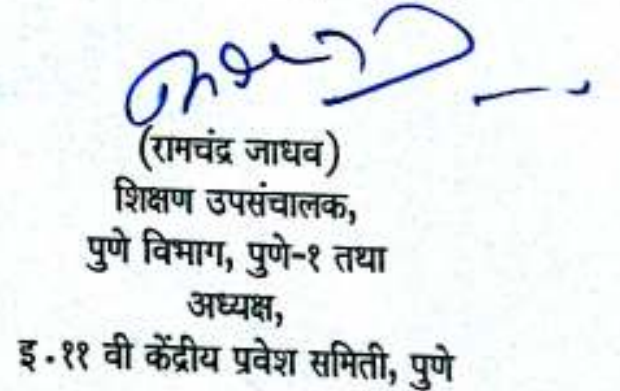 (रामचंद्र जाधव)
शिक्षण उपसंचालक,
पुणे विभाग, पुणे-१ तथा
अध्यक्ष,
इ.११ वी केंद्रीय प्रवेश समिती, पुणे